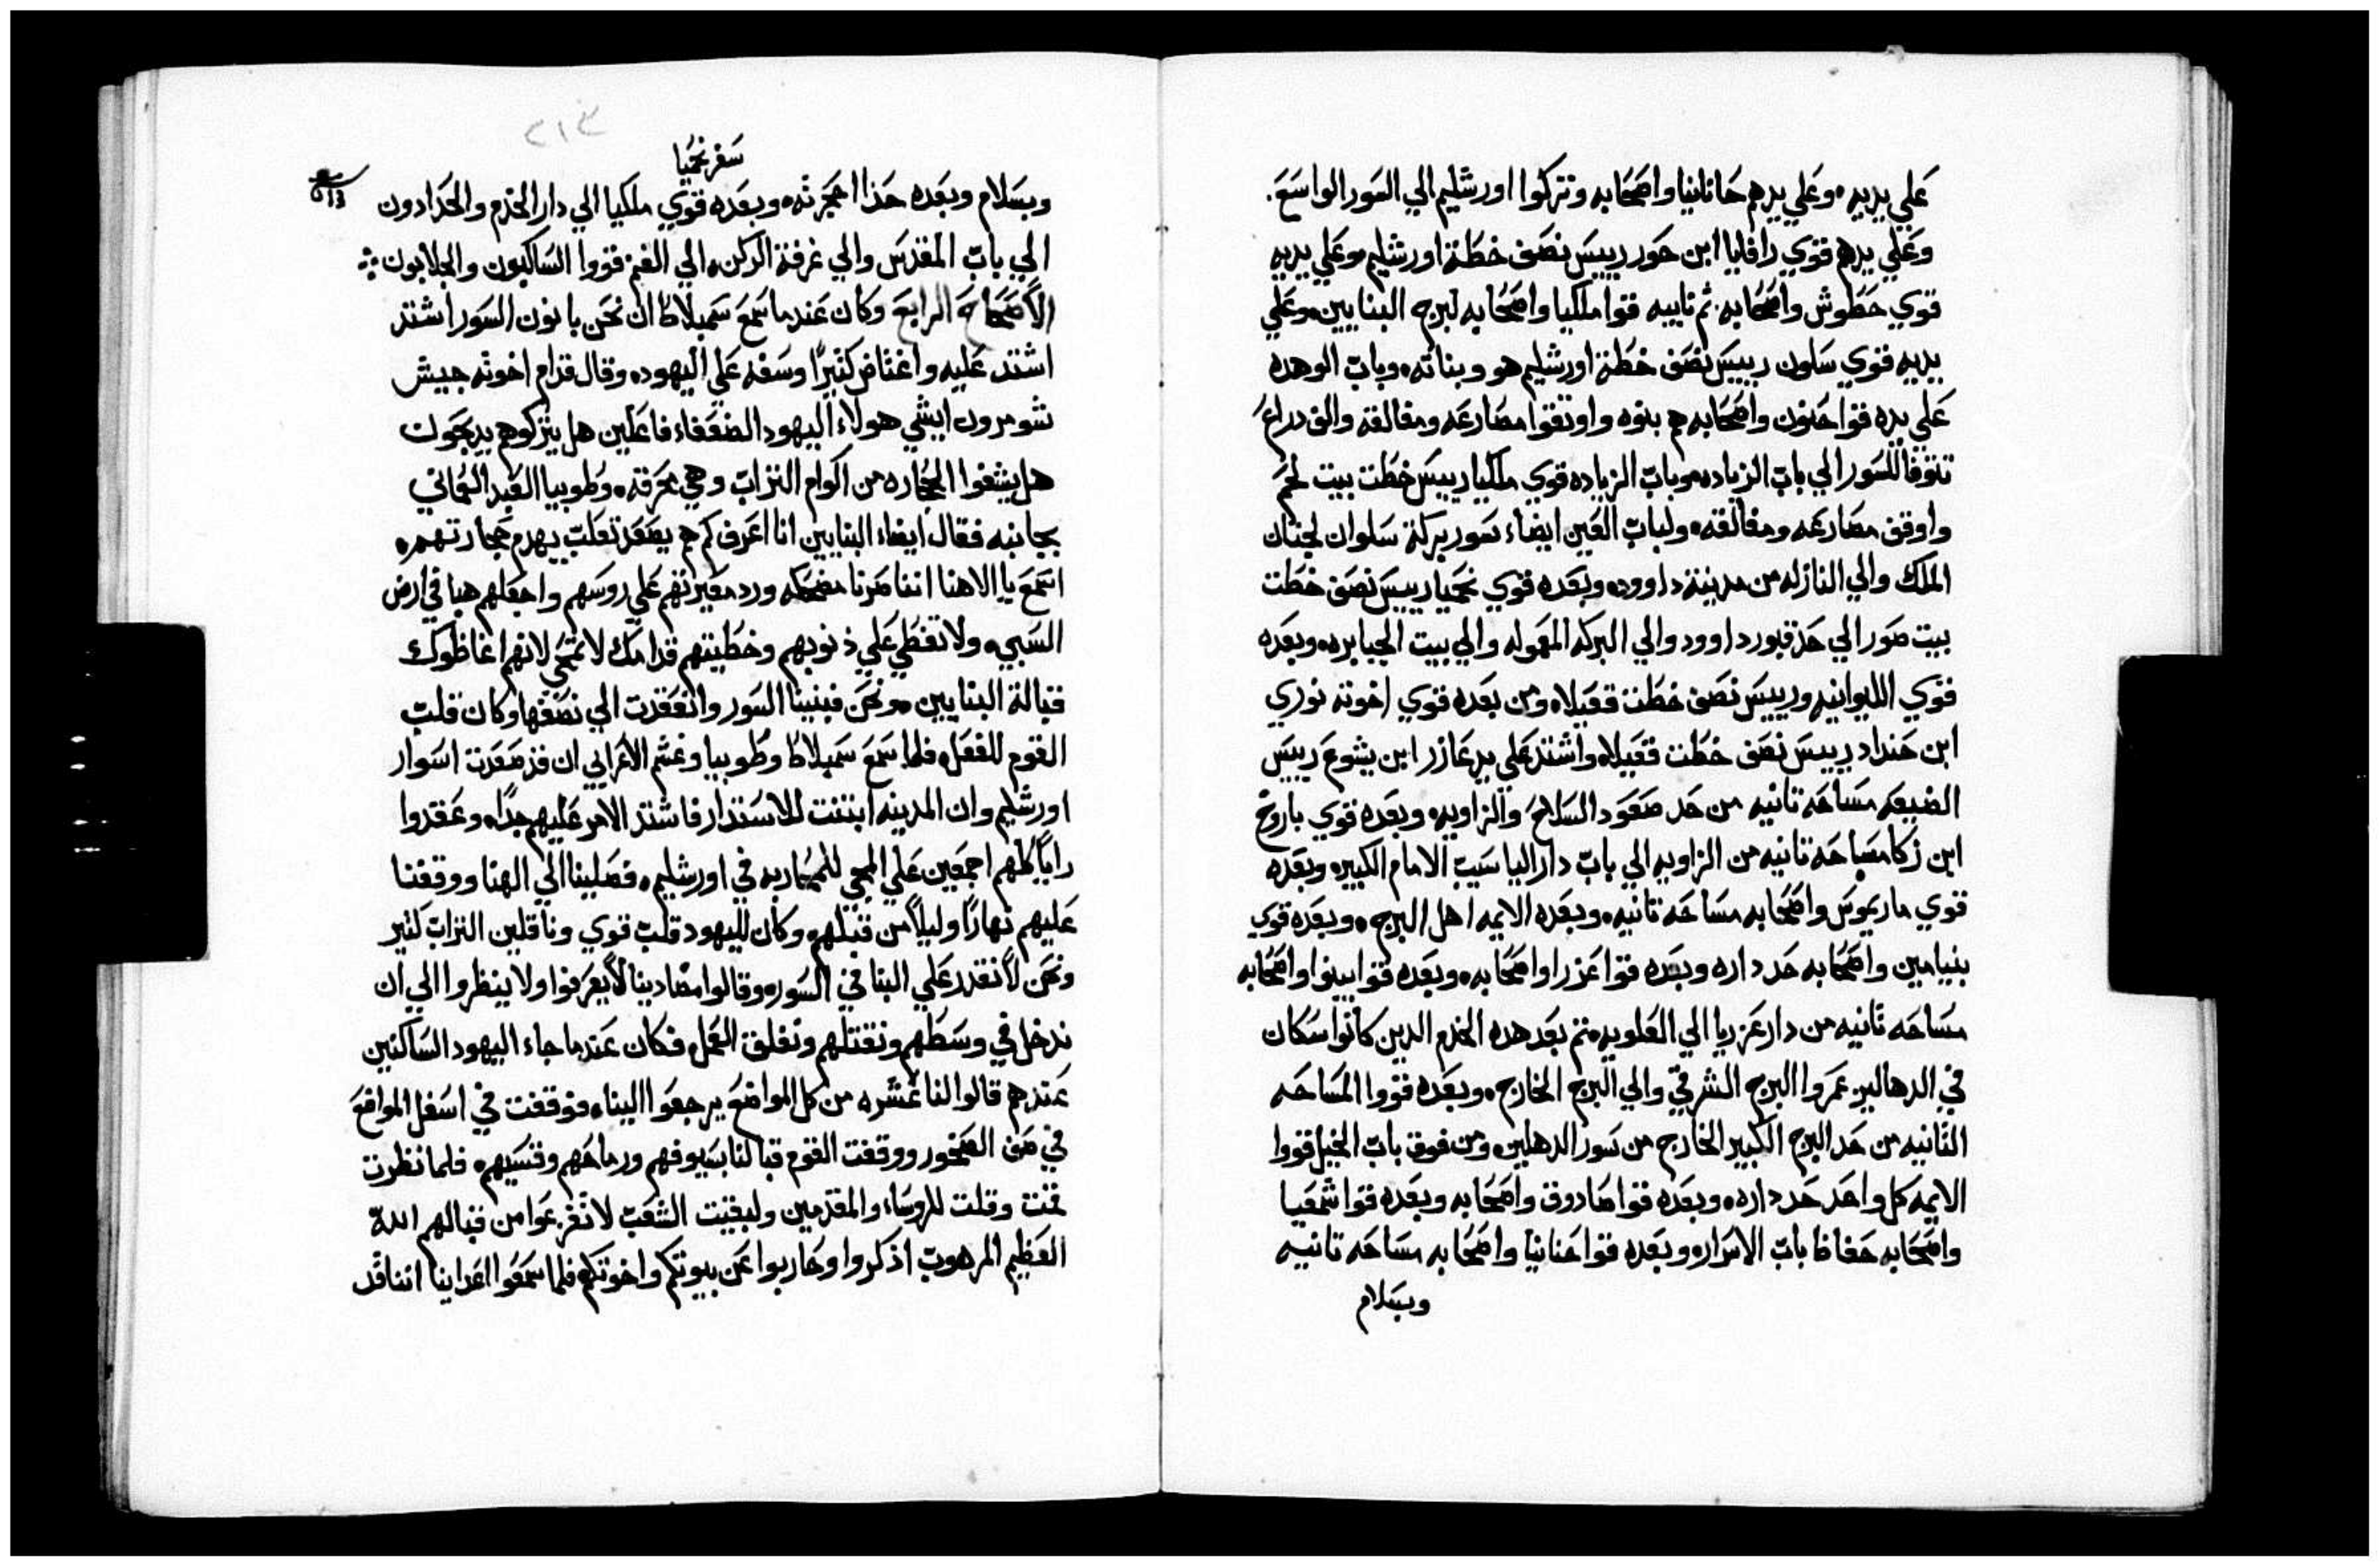 علي يديه۰ وعلي يدهم حانانيا واصحابه وتركوا اورشليم الي السور الواسع.
وعلي يدهم قوي رافايا ابن حور رييس نصف خطة اورشليم۰ وعلي يديه
قوي حطوش واصحابه. ثم نابيه قوا ملكيا واصحابه لبرج البنايين۰ وعلي
يديه قوي سلون رييس نصف خطة اورشليم هو وبناته۰ وباب الوهده
علي يده قوا حنون واصحابه هم بنوه واوتقوا مصارعه ومغالقه والف دراع
السور الي باب الزياده۰ وباب الزياده قوي ملكيا رييس خطت بيت لحم
واوقف مصارعه ومغالقه۰ ولباب العين ايضاء سور بركة سلوان لجنان
الملك والي النازله من مدينة داوود۰ وبعده قوي نحميا رييس نصف خطت
بيت صور الي حد قبور داوود والي البركه المعموله والي بيت الجبابره۰ وبعده
قوي الليوانيه ورييس نصف خطت قعيلا۰ ومن بعده قوي اخوته نوري
ابن حنداد رييس نصف خطت قعيلا۰ واشتد علي يد عازر ابن يشوع رييس
الضيعه مساحه تانيه من حد صعود السلاح والزاويه۰ وبعده قوي باروخ
ابن زكا مساحه تانيه من الزاويه الي باب دار الياسيب الامام الكبير۰ وبعده
قوي ماريموس واصحابه مساحه تانيه۰ وبعده الايمه اهل البرج۰ وبعده قوي
بنيامين واصحابه حد داره وبعده قوا عزرا واصحابه۰ وبعده قوا بينوا واصحابه
مساحه تانيه من دار عزريا الي العلويه۰ تم بعد هده الخدم الدين كانوا سكان
في الدهاليز عمروا البرج الشرقي والي البرج الخارج۰ وبعده قووا المساحه
التانيه من حد البرج الكبير الخارج من سور الدهليز۰ ومن فوق باب الخيل قووا
الايمه كل واحد حد داره۰ وبعده قوا صادوق واصحابه وبعده قوا شمعيا
واصحابه حفاظ باب الاسرار۰ وبعده قوا حنانيا واصحابه مساحه تانيه
وبسلام
٢١٣
سفر نحميا
213
وبسلام وبعده حدا احجرته۰ وبعده قوي ملكيا الي دار الخدم والحدادون
الي باب المقدس والي غرفة الركن۰ الي الغنم قووا الساكبون والجلابون
الاصحاح الرابع وكان عندما سمع سمبلاط ان نحن بانون السور اشتد
اشتد عليه واغتاض كتيرًا وسفه علي اليهود۰ وقال قدام اخوته جيش
شومرون ايشي هولاء اليهود الضعفاء فاعلين هل يتركوهم يدبحون
هل يشفوا الحجاره من اكوام التراب وهي محرقه۰ وطوبيا العبد العماني
بجانبه فقال ايضاء البنايين انا اعرف كم هم يصعد تعلب يهدم حجارتهم۰
اسمع يا الاهنا اننا صرنا مضحكه ورد معيرتهم علي روسهم واجعلهم هبا في ارض
السبي۰ ولا تغطي علي ذنوبهم وخطيتهم قدامك لا تمتحي لانهم اغاظوك
قبالة البنايين۰ ونحن فبنينا السور وانعقدت الي نصفها وكان قلب
القوم للفعل۰ فلما سمع سمبلاط وطوبيا وغشم الاعرابي ان قد صعدت اسوار
اورشليم وان المدينه ابتنت للاستدار فاشتد الامر عليهم جدًا۰ وعقدوا
رايًا كلهم اجمعين علي المجي للمحاربه في اورشليم۰ فصلينا الي الهنا ووقفنا
عليهم نهارًا وليلًا من قبلهم۰ وكان لليهود قلب قوي وناقلين التراب كتير
ونحن لا نقدر علي البنا في السور۰ وقالوا مضادينا لا يعرفوا ولا ينظروا الي ان
ندخل في وسطهم ونقتلهم ونغلق العمل۰ فكان عندما جاء اليهود الساكنين
عندهم قالوا لنا عشره من كل المواضع يرجعوا الينا۰ فوقفت في اسفل المواضع
في صف الصخور ووقفت القوم قبالنا بسيوفهم ورماحهم وقسيهم۰ فلما نظرت
قمت وقلت للروساء والمقدمين ولبقيت الشعب لا تفزعوا من قبالهم الله
العظيم المرهوب اذكروا وحاربوا عن بيوتكم واخوتكم۰ فلما سمعوا اعداينا اننا قد